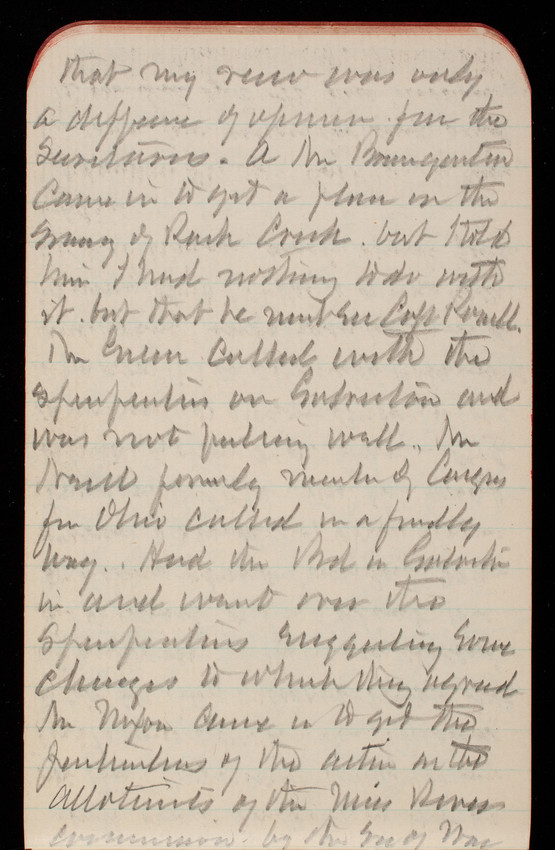 that my view was only
a difference of opinion from the
Secretarys. A Mr Baumgarten
came in to get a place on the
Survey of Rock Creek. but I told
him I had nothing to do with
it. but that he must see Capt Powell.
Mr Green called with the
specification on and
was not feeling well. Mr
formerly member of Congress
from Ohio called in a friendly
way. Had the Bd on
in and went over the
specifications suggesting some
changes to which they agreed
Mr Nixon came in to get the
particulars of the action on the
allotments of the Miss River
commission. by the Sec of War